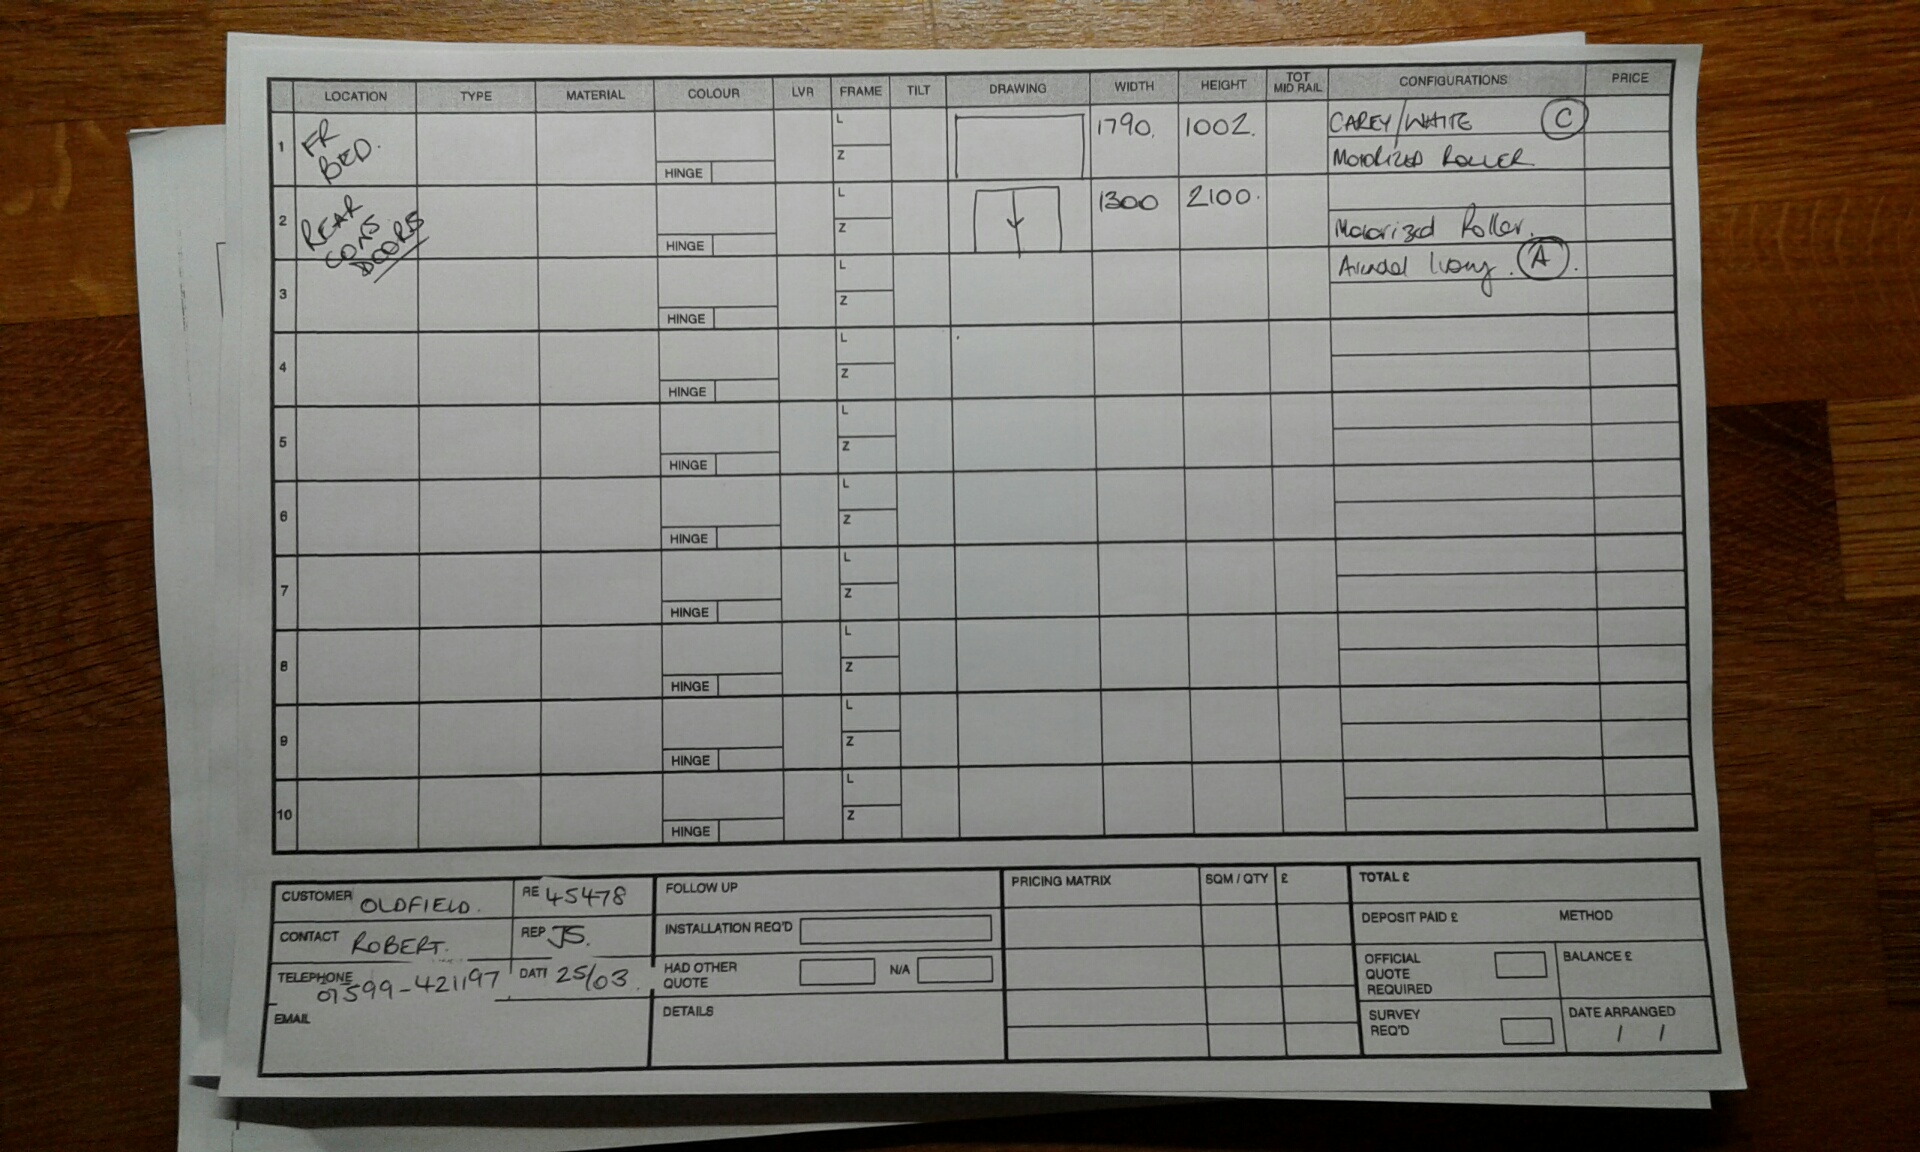 LOCATION TYPE MATERIAL COLOUR LVR FRAME TILT DRAWING WIDTH HEIGHT TOT MID RAIL CONFIGURATIONS PRICE
1 FR BED. HINGE L Z 1790. 1002. CAREY/WHITE C
MOTORIZED ROLLER
2 REAR CONS DOORS HINGE L Z 1300 2100.
Motorized Roller.
3 HINGE L Z Arundel Ivory. A.
4 HINGE L Z
5 HINGE L Z
6 HINGE L Z
7 HINGE L Z
8 HINGE L Z
9 HINGE L Z
10 HINGE L Z
CUSTOMER OLDFIELD. RE 45478
CONTACT ROBERT. REP JS.
TELEPHONE 07599-421197 DATE 25/03
EMAIL
FOLLOW UP
INSTALLATION REQ'D
HAD OTHER QUOTE N/A
DETAILS
PRICING MATRIX SQM / QTY £
TOTAL £
DEPOSIT PAID £ METHOD
OFFICIAL QUOTE REQUIRED BALANCE £
SURVEY REQ'D DATE ARRANGED
/ /